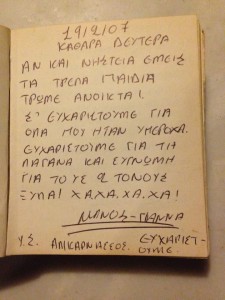 19/2/07
ΚΑΘΑΡΑ ΔΕΥΤΕΡΑ
ΑΝ ΚΑΙ ΝΗΣΤΕΙΑ ΕΜΕΙΣ
ΤΑ ΤΡΕΛΑ ΠΑΙΔΙΑ
ΤΡΩΜΕ ΑΝΟΙΚΤΑ!
Σ' ΕΥΧΑΡΙΣΤΟΥΜΕ ΓΙΑ
ΟΛΑ ΜΟΥ ΗΤΑΝ ΥΠΕΡΟΧΑ.
ΕΥΧΑΡΙΣΤΟΥΜΕ ΓΙΑ ΤΗ
ΛΑΓΑΝΑ ΚΑΙ ΣΥΓΝΩΜΗ
ΓΙΑ ΤΟΥΣ 2 ΤΟΝΟΥΣ
ΞΥΠΑ! ΧΑ, ΧΑ, ΧΑ, ΧΑ!
ΝΑΝΟΣ-ΓΙΑΝΝΑ
Υ.Σ. ΑΛΙΚΑΡΝΑΣΣΟΣ. ΕΥΧΑΡΙΣΤ-
ΟΥΜΕ